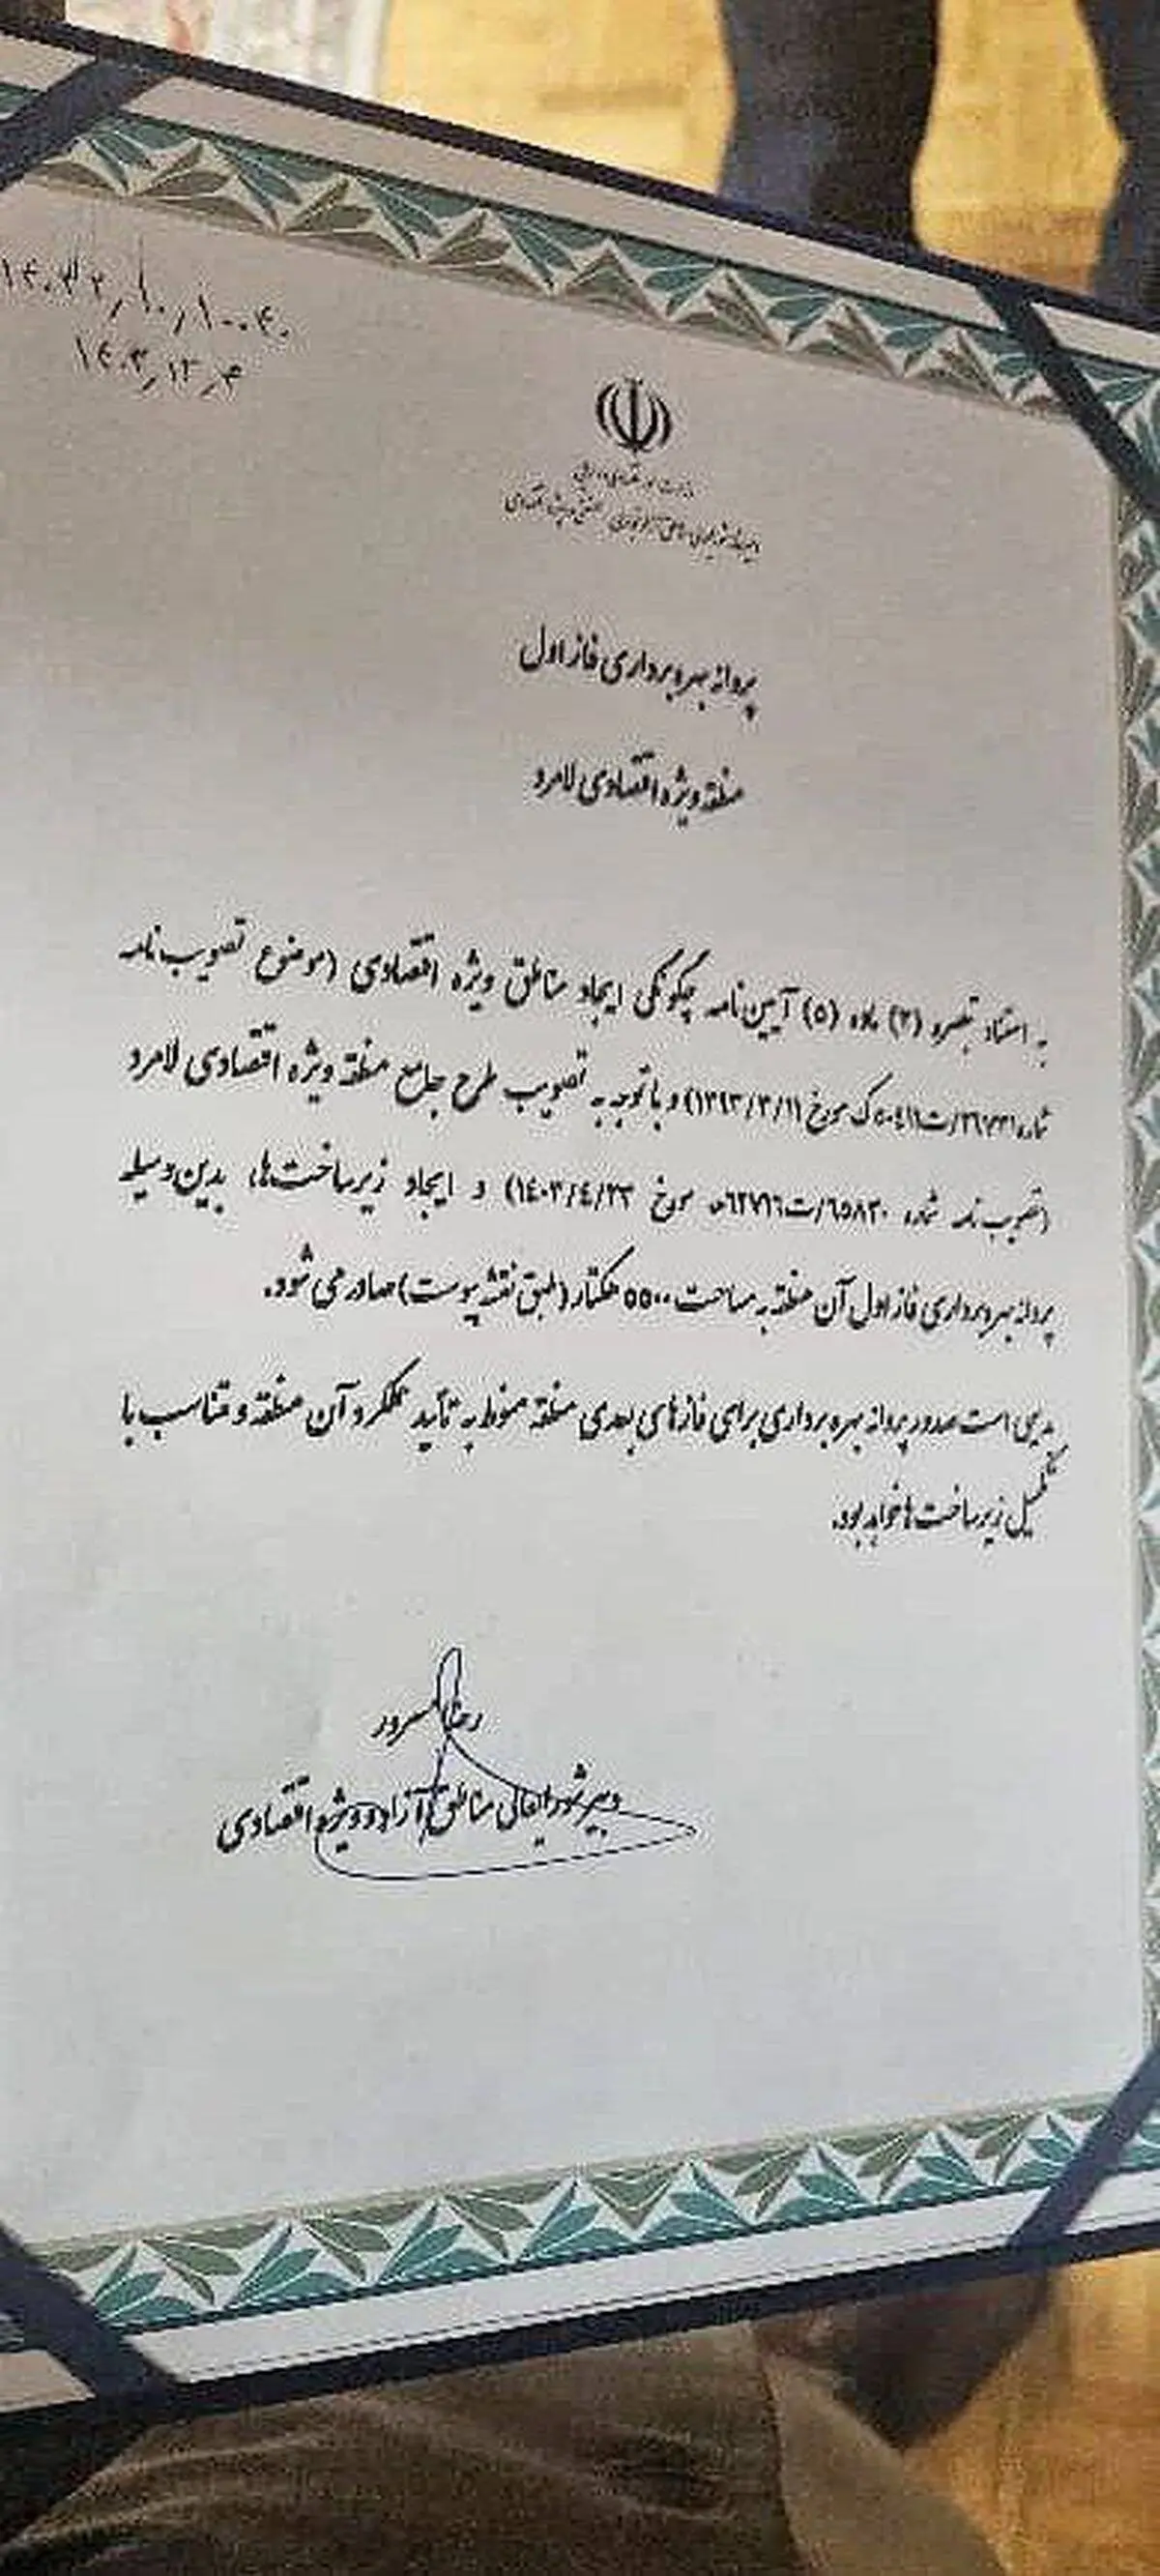 ۱۴۰۳/۱۲/۴
وزارت امور اقتصادی و دارایی
دبیرخانه شورایعالی مناطق آزاد تجاری - صنعتی و ویژه اقتصادی
پروانه بهره برداری فاز اول
منطقه ویژه اقتصادی لامرد
به استناد تبصره (۲) ماده (۵) آیین نامه چگونگی ایجاد مناطق ویژه اقتصادی (موضوع تصویب نامه
شماره مورخ ۱۳۹۳/۳/۱۱) و با توجه به تصویب طرح جامع منطقه ویژه اقتصادی لامرد
(تصویب نامه شماره ۶۵۸۳۰/ت۶۲۷۱۶ه مورخ ۱۴۰۳/۴/۲۳) و ایجاد زیرساخت‌ها، بدین وسیله
پروانه بهره برداری فاز اول آن منطقه به مساحت ۵۵۰۰ هکتار (طبق نقشه پیوست) صادر می شود.
بدیهی است صدور پروانه بهره برداری برای فازهای بعدی منطقه منوط به تأیید عملکرد آن منطقه و متناسب با
تکمیل زیرساخت ها خواهد بود.
رضا مسرور
دبیر شورایعالی مناطق آزاد و ویژه اقتصادی